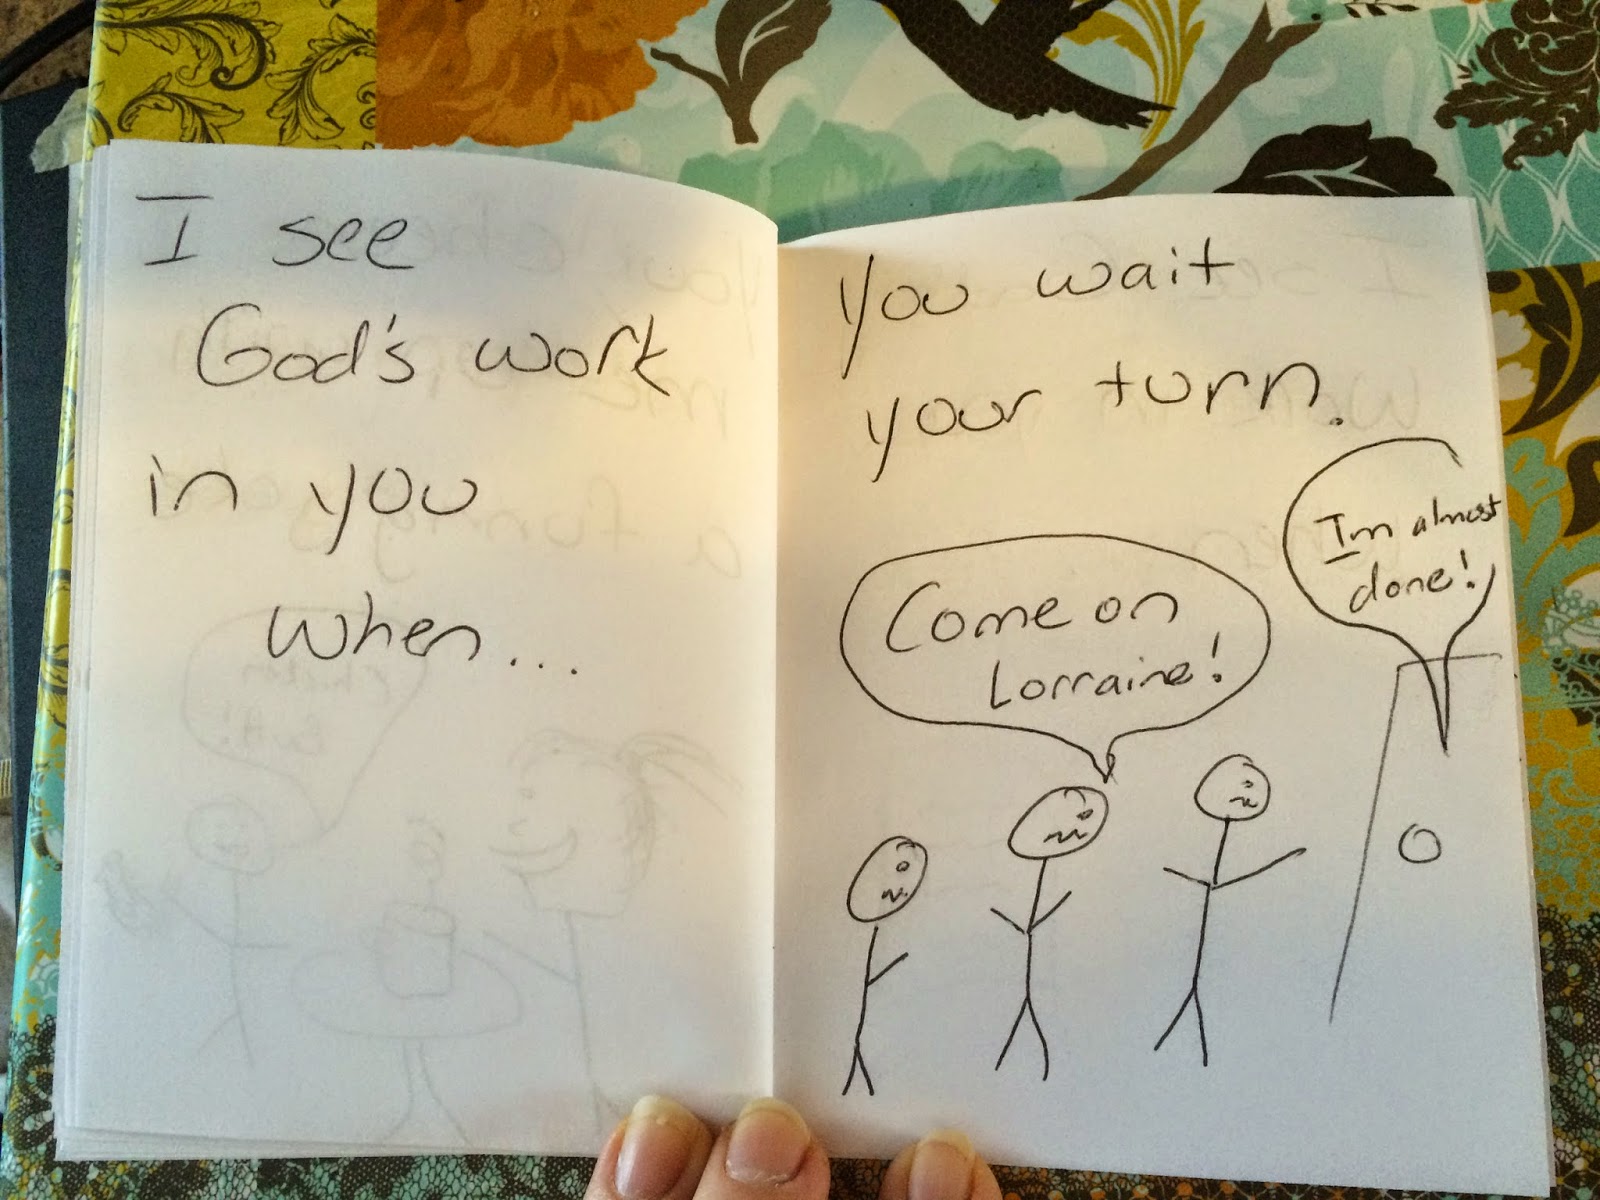 I see
God's work
in you
when...
You wait
your turn.
I'm almost
done!
Come on
Lorraine!